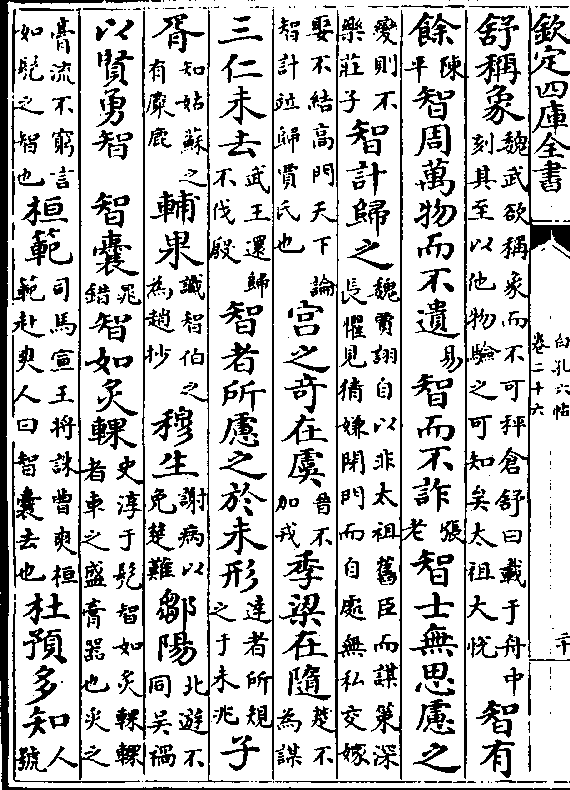 欽定四庫全書
白孔六帖
卷二十六
二十
舒稱象魏武欲稱象而不可秤倉舒曰載于舟中刻其至以他物驗之可知矣太祖大悅智有
餘陳平智周萬物而不遺易智而不詐張老智士無思慮之
變則不樂莊子智計歸之魏賈詡自以非太祖舊臣而謀策深長懼見猜嫌閉門而自處無私交嫁
娶不結高門天下論智計竝歸賈氏也宮之奇在虞晉不加戎季梁在隨楚不為謀
三仁未去武王還歸不伐殷智者所慮之於未形達者所規之于未兆子
胥知姑蘇之有麋鹿輔果識智伯之為趙抄穆生謝病以免楚難鄒陽北遊不同吳禍
以賢勇智 智囊晁錯智如炙輠史淳于髡智如炙輠輠者車之盛膏器也炙之
膏流不窮言如髡之智也桓範司馬宣王將誅曹爽桓範赴爽人曰智囊去也杜預多知人號